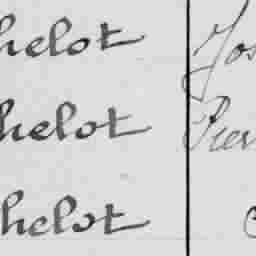 helot Jos
helot Pier
helot